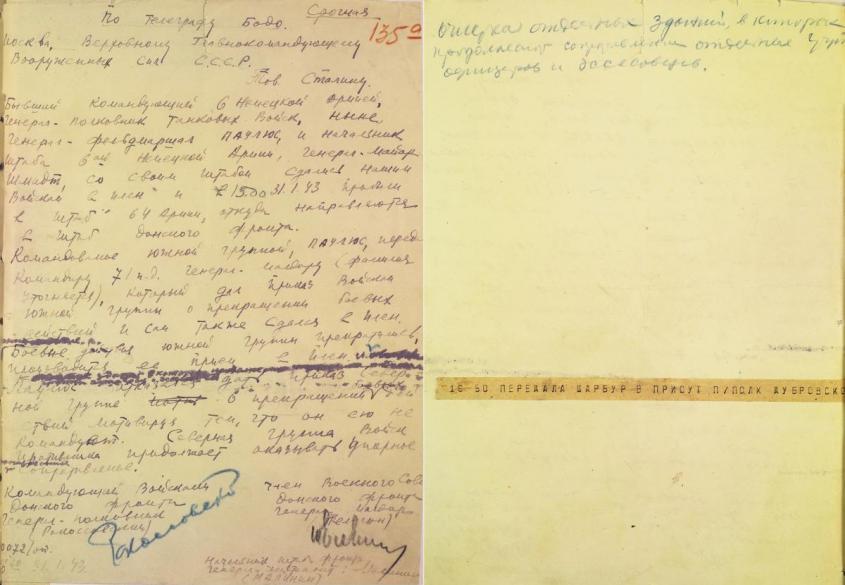 По Телеграфу Бодо. Срочная
135
Москва, Верховному Главнокомандующему
Вооруженных Сил С.С.С.Р.
Тов. Сталину.
Бывший командующий 6 Немецкой Армией,
Генерал-полковник танковых войск, ныне
Генерал-фельдмаршал ПАУЛЮС, и начальник
штаба 6ой Немецкой Армии, Генерал-майор
Шмидт, со своим штабом сдались нашим
Войскам в плен и в 15.00 31.1.43 прибыли
в штаб 64 Армии, откуда направляются
в штаб Донского фронта.
Командование южной группой, ПАУЛЮС, передал
Командиру 71 п.д. генерал-майору (фамилия
уточняется), который дал приказ Войскам
южной группы о прекращении боевых
действий и сам также сдался в плен.
Боевые действия южной группы прекратились,
её прием в плен.
Паулюс дать приказ
ной группе о прекращении
ствий мотивируя тем, что он ею не
командует. Северная группа Войск
противника продолжает оказывать упорное
сопротивление.
Командующий Войсками Член Военного Сове
Донского фронта Донского фронта
Генерал-полковник Генерал-майор
(Рокоссовский) (Телегин)
Рокоссовский
0072/оп.
31.1.43. Начальник штаба фронта
Генерал-лейтенант
(МАЛИНИН)
отдельных зданий, в которых
продолжают сопротивление отдельные
офицеров и эсесовцев.
16 50 ПЕРЕДАЛА ШАРБУР В ПРИСУТ П/ПОЛК ДУБРОВСКО